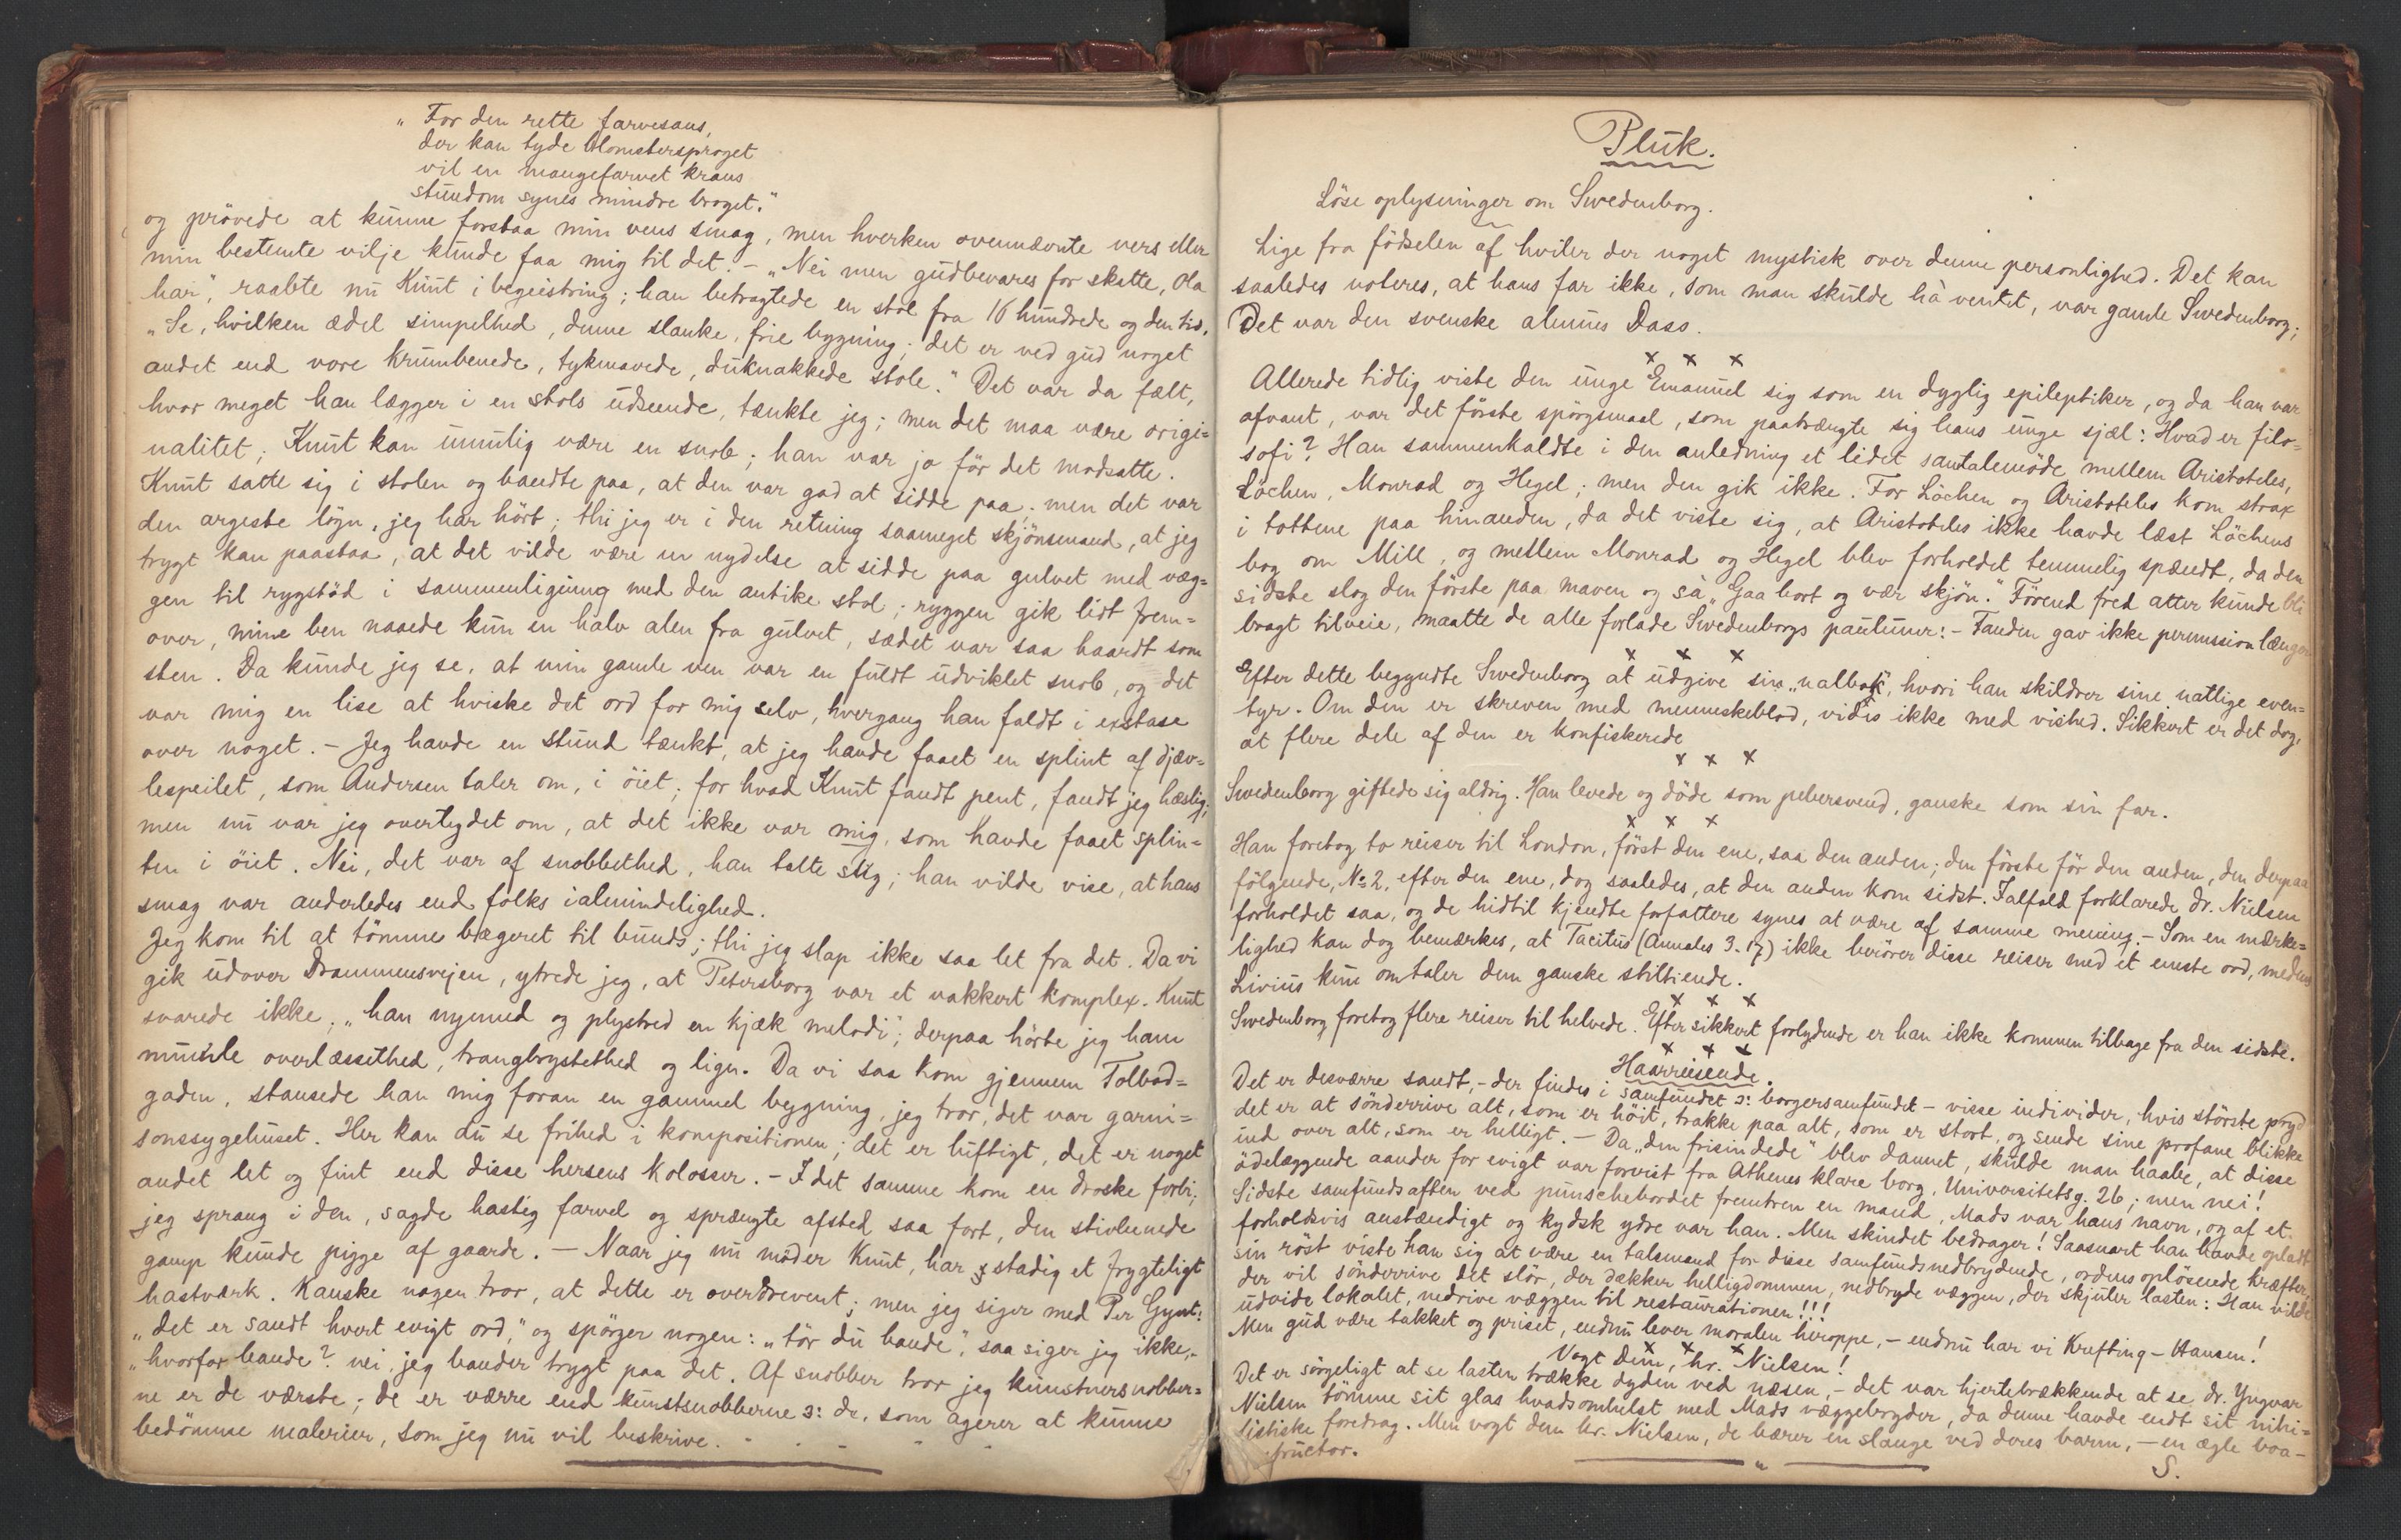 „For den rette farvesans,
der kan tyde blomstersproget
vil en mangefarvet krans
stundom synes mindre broget.”
og prövede at kunne forstaa min vens smag, men hverken ovennævnte vers eller
min bestemte vilje kunde faa mig til det. – „Nei men gudbevares for skatte, Ola
har”, raabte nu Knut i begeistring; han betragtede en stol fra 16 hundrede og den tid.
„Se, hvilken ædel simpelhed, denne slanke, frie bygning; det er ved gud noget
andet end vore krumbenede, tykmavede, duknakkede stole.” Det var da fælt,
hvor meget han lægger i en stols udseende, tænkte jeg; men det maa være origi=
nalitet; Knut kan umulig være en snob; han var jo för det modsatte.
Knut satte sig i stolen og bandte paa, at den var god at sidde paa; men det var
den argeste lögn, jeg har hört; thi jeg er i den retning saameget skjönsmand, at jeg
trygt kan paastaa, at det vilde være en nydelse at sidde paa gulvet med væg=
gen til rygstöd i sammenligning med den antike stol; ryggen gik lidt frem=
over, mine ben naaede kun en halv alen fra gulvet, sædet var saa haardt som
sten. Da kunde jeg se, at min gamle ven var en fuldt udviklet snob, og det
var mig en lise at hviske det ord for mig selv, hvergang han faldt i exstase
over noget. – Jeg havde en stund tænkt, at jeg havde faaet en splint af djæv=
lespeilet, som Andersen taler om, i öiet; for hvad Knut fandt pent, fandt jeg hæslig;
men nu var jeg overtydet om, at det ikke var mig, som havde faaet splin=
ten i öiet. Nei, det var af snobbethed, han talte slig; han vilde vise, at hans
smag var anderledes end folks i almindelighed.
Jeg kom til at tömme bægeret til bunds; thi jeg slap ikke saa let fra det. Da vi
gik udover Drammensvejen, ytrede jeg, at Petersborg var et vakkert komplex. Knut
svarede ikke, „han nynned og plystred en kjæk melodi”; derpaa hörte jeg ham
mumle overlæssethed, trangbrystethed og lign. Da vi saa kom gjennem Tolbod=
gaden, stansede han mig foran en gammel bygning, jeg tror, det var garni=
sonssygehuset. Her kan du se frihed i kompositionen; det er luftigt, det er noget
andet let og fint end disse hersens kolosser. – I det samme kom en droske forbi;
jeg sprang i den, sagde hastig farvel og sprængte afsted saa fort, den stivbenede
gamp kunde pigge af gaarde. – Naar jeg nu möder Knut, har jeg stadig et frygteligt
hastværk. Kanske nogen tror, at dette er overdrevent; men jeg siger med Per Gynt:
„det er sandt hvert evigt ord,” og spörger nogen: „tör du bande”, saa siger jeg ikke,–
„hvorfor bande”? nei, jeg bander trygt paa det. Af snobber tror jeg kunstnersnobber=
ne er de værste; de er værre end kunstsnobberne ɔ: de, som agerer at kunne
bedömme malerier, som jeg nu vil beskrive. - - - - -
Pluk.
Löse oplysninger om Swedenborg.
Lige fra födselen af hviler der noget mystisk over denne personlighed. Det kan
saaledes noteres, at hans far ikke, som man skulde ha ventet, var gamle Swedenborg;
Det var den svenske alumnus Dass.
x x x
Allerede tidlig viste den unge Emanuel sig som en dygtig epileptiker, og da han var
afvant, var det förste spörgsmaal, som paatrængte sig hans unge sjæl: Hvad er filo=
sofi? Han sammenkaldte i den anledning et lidet samtalemöde mellem Aristoteles,
Löchen, Monrad og Hegel; men den gik ikke. For Löchen og Aristoteles kom strax
i tottene paa hinanden, da det viste sig, at Aristoteles ikke havde læst Löchens
bog om Mill, og mellem Monrad og Hegel blev forholdet temmelig spændt, da den
sidste slog den förste paa maven og sa „Gaa bort og vær skjön”. Förend fred atter kunde bli
bragt tilveie, maatte de alle forlade Swedenborgs pauluner: – Fanden gav ikke permission længer
x x x
Efter dette begyndte Swedenborg at udgive sin „natbok”, hvori han skildrer sine natlige even=
tyr. Om den er skreven med menneskeblod, vides ikke med vished. Sikkert er det dog,
at flere dele af den er konfiskerede
x x x
Swedenborg giftede sig aldrig. Han levede og döde som pebersvend, ganske som sin far.
x x x
Han foretog to reiser til London, först den ene, saa den anden; den förste för den anden, den derpaa
fölgende, No 2, efter den ene, dog saaledes, at den anden kom sidst. Ialfald forklarede Dr. Nielsen
forholdet saa, og de hidtil kjendte forfattere synes at være af samme mening. – Som en mærke=
lighed kan dog bemærkes, at Tacitus (Annales 3-17) ikke berörer disse reiser med et eneste ord, medens
Livius kun omtaler dem ganske stiltiende.
x x x
Swedenborg foretog flere reiser til helvede. Efter sikkert forlydende er han ikke kommen tilbage fra den sidste.
x x x
Haarreisende.
Det er desværre sandt, – der findes i samfundet ɔ: borgersamfundet – visse individer, hvis störste pryd
det er at sönderrive alt, som er höit, trakke paa alt, som er stort, og sende sine profane blikke
ind over alt, som er helligt. – Da „den frisindede” blev dannet, skulde man haabe, at disse
ödelæggende aander for evigt var forvist fra Athenes klare borg, Universitetsg. 26; men nei!
Sidste samfundsaften ved punschebordet fremtren en mand, Mads var hans navn, og af et
forholdsvis anstændigt og kydsk ydre var han. Men skindet bedrager! Saasnart han havde opladt
sin röst viste han sig at være en talsmand for disse samfundsnedbrydende, ordensoplösende kræfter,
der vil sönderrive det slör, der dækker helligdommen, nedbryde væggen, der skjuler lasten: Han vilde
udvide lokalet, nedrive væggen til restaurationen!!!
Men gud være takket og priset, endnu lever moralen heroppe, – endnu har vi Krefting-Hansen!
x x x
Vogt Dem, hr. Nielsen!
Det er sörgeligt at se lasten trække dyden ved næsen, – det var hjertebrækkende at se dr. Yngvar
Nielsen tömme sit glas hvadsomhelst med Mads væggebryder, da denne havde endt sit nihi=
listiske foredrag. Men vogt dem hr. Nielsen, de bærer en slange ved deres barm, – en ægte boa-
structor.
S.